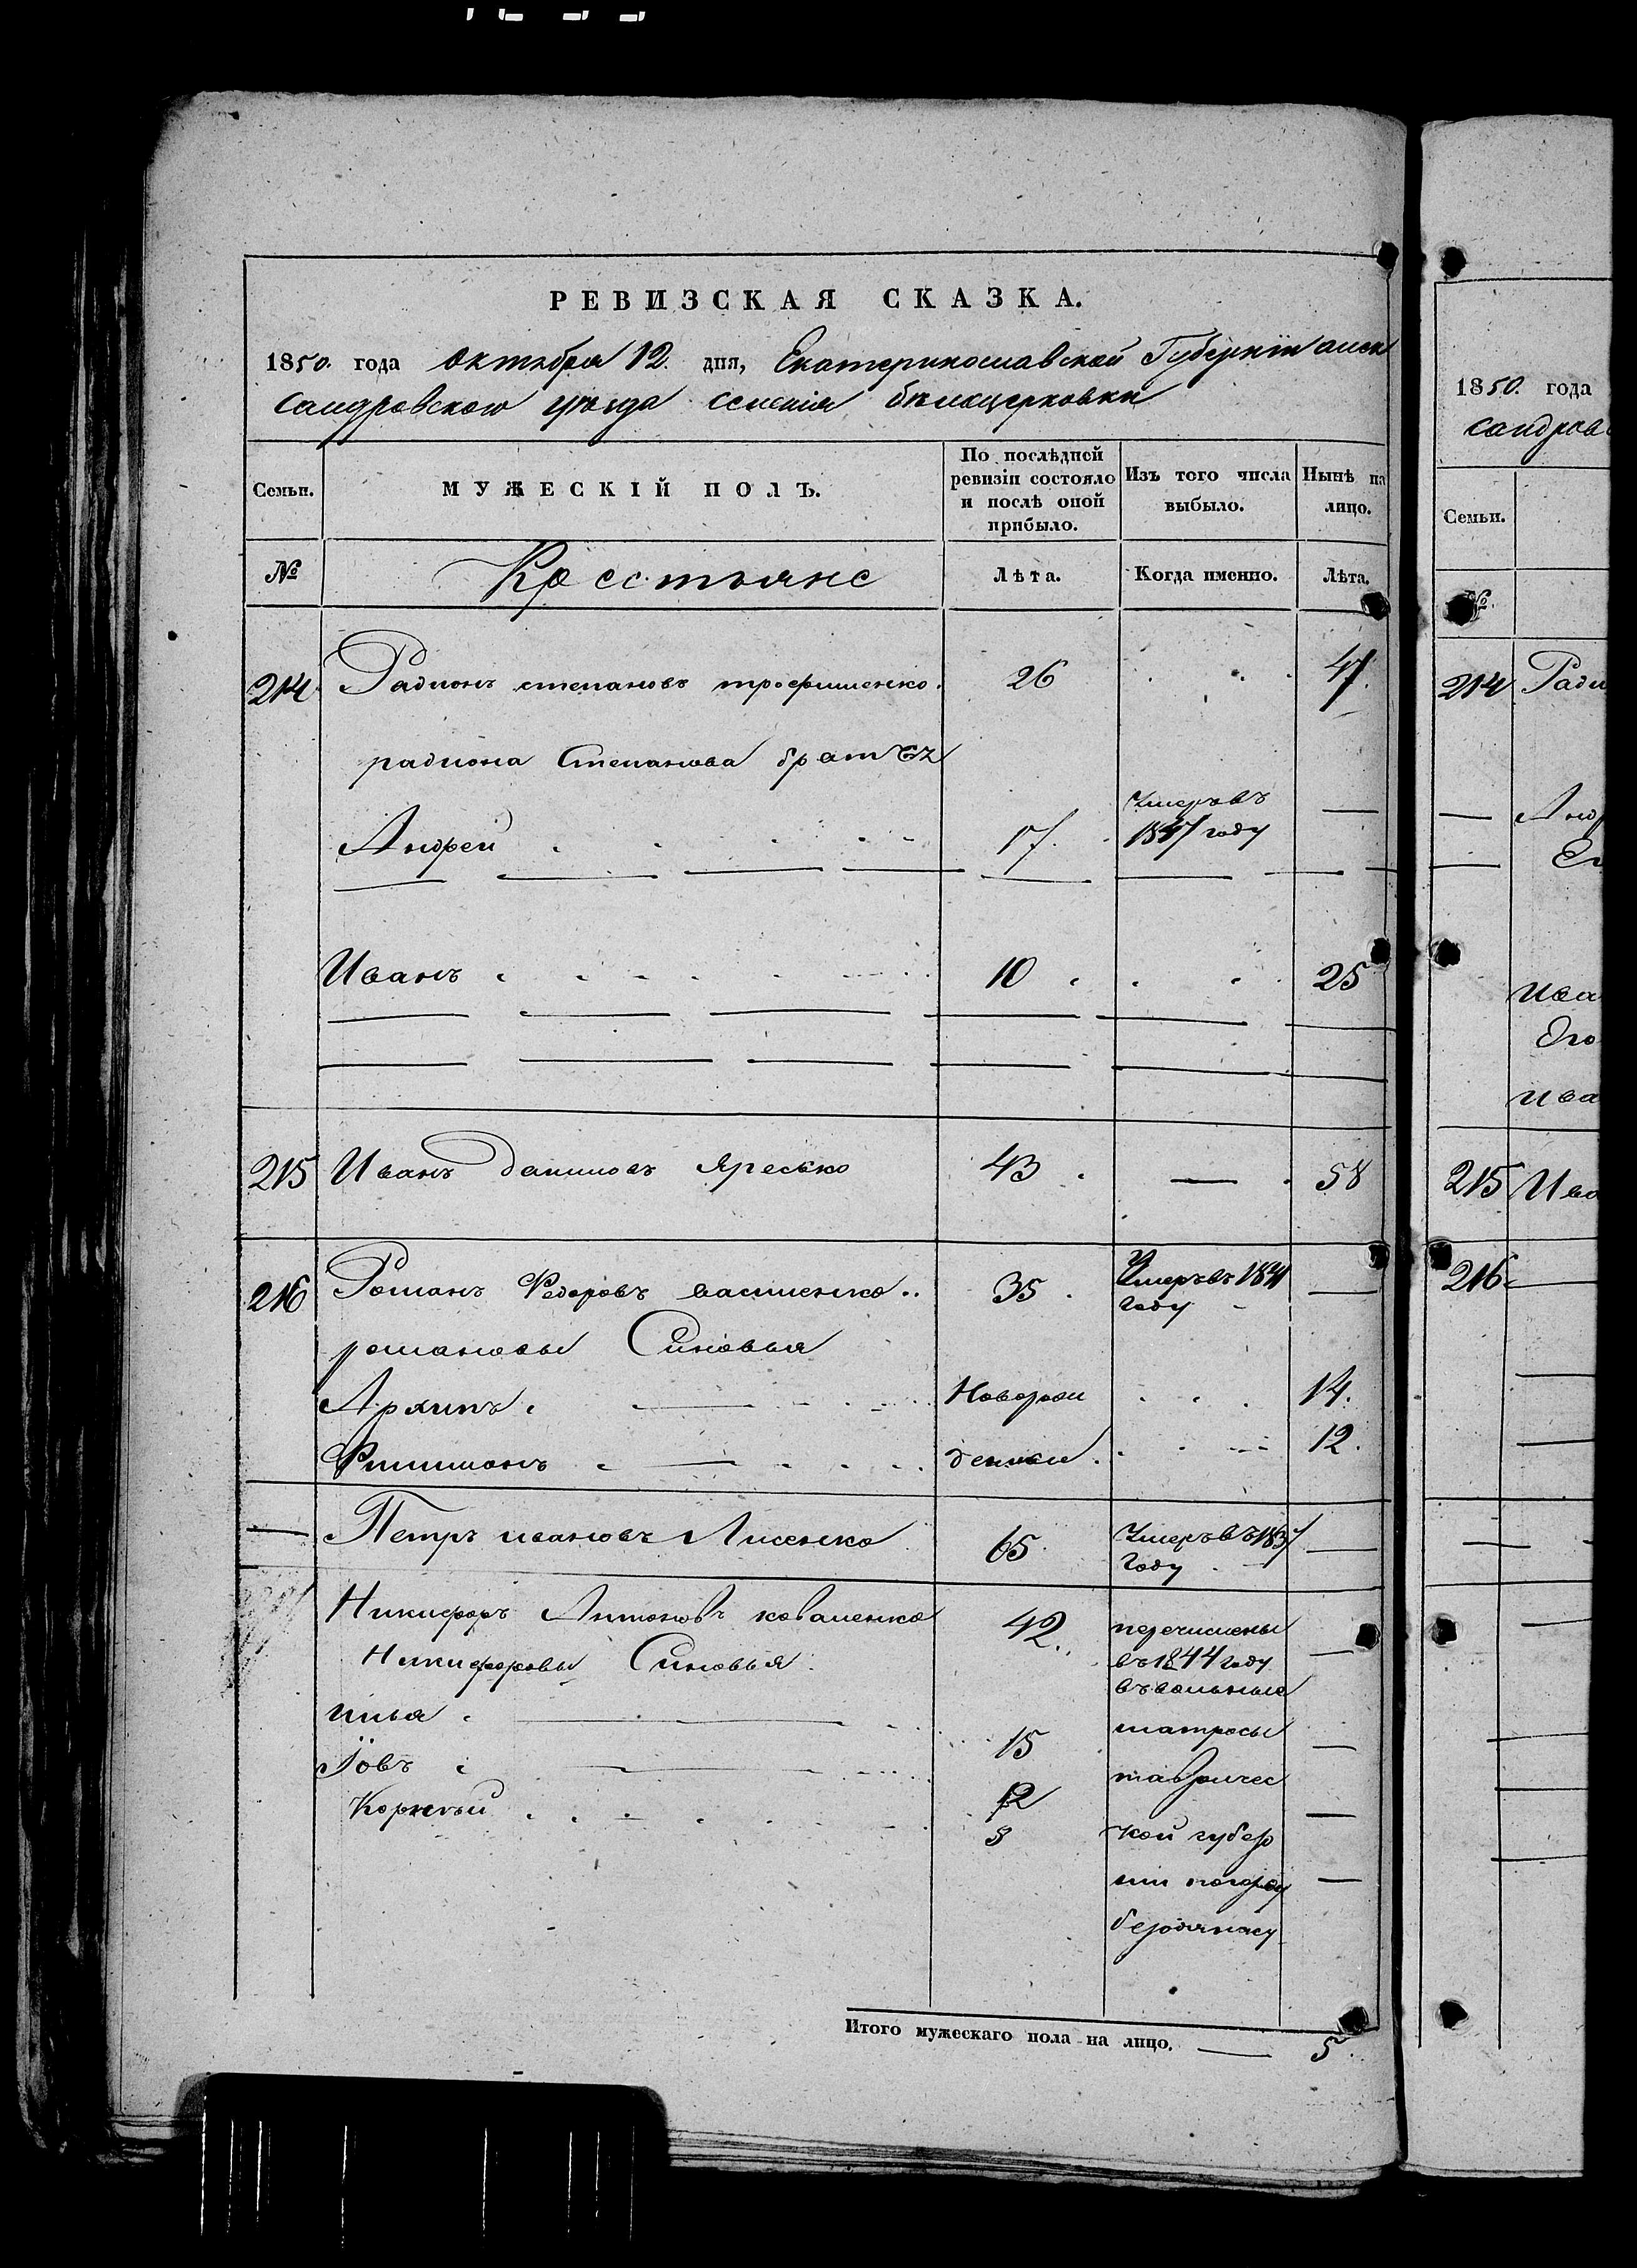 РЕВИЗСКАЯ СКАЗКА.
1850. года октября 12. дня, Екатеринославской Губерніи алек
сандровского уѣзда селенія бѣлоцерковки
Семьи.
МУЖЕСКІЙ ПОЛЪ.
По послѣдней ревизіи состояло и послѣ оной прибыло.
Изъ того числа выбыло.
Нынѣ на лицо.
№
Крестьяне
Лѣта.
Когда именно.
Лѣта.
214 Радионъ степановъ трофименко. 26 47.
радиона Степанова братъя
Андрей 17. Умеръ въ 1847 году —
Иванъ 10 25
215 Иванъ даниловъ яресько 43 — 58
216 Романъ Федоровъ василенко 35 Умеръ въ году —
романовы Синовья
Архипъ Новорож 14.
Филимонъ денные 12.
— Петръ ивановъ Лисенко 65 Умеръ въ 1837 году —
Никифоръ Антоновъ коваленко 42. перечислены
Никифоровы Синовья въ 1844 году —
въ вольные
илья 15 матросы
Іовъ 12 тавричес —
Корнѣй 8 кой губер —
ніи погороду —
бердянску
Итого мужескаго пола на лицо. — 5.
1850. года
сандров
Семьи.
№.
214 Ради
— Анд
Ег
ива
Его
ива
215 Ива
216